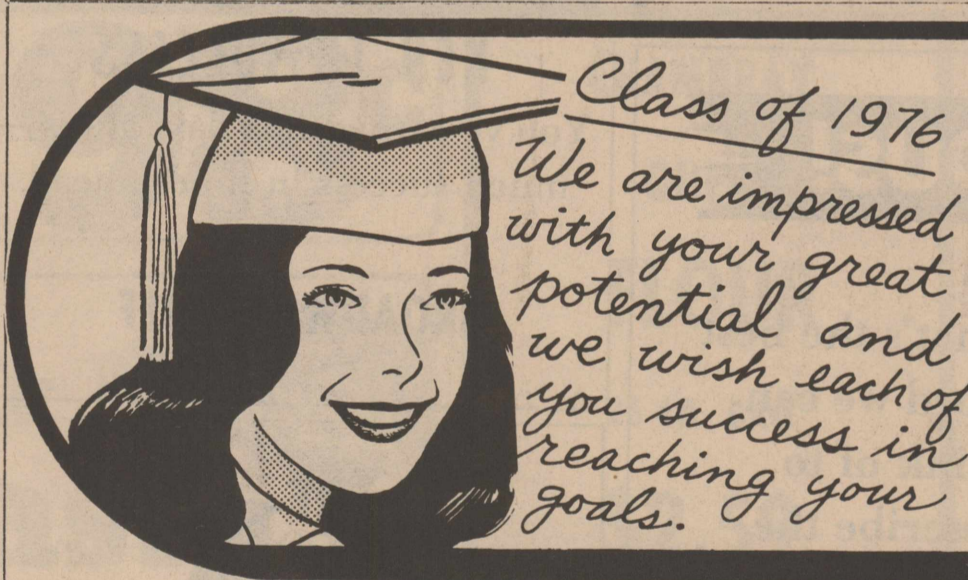 Class of 1976
We are impressed
with your great
potential and
we wish each of
you success in
reaching your
goals.